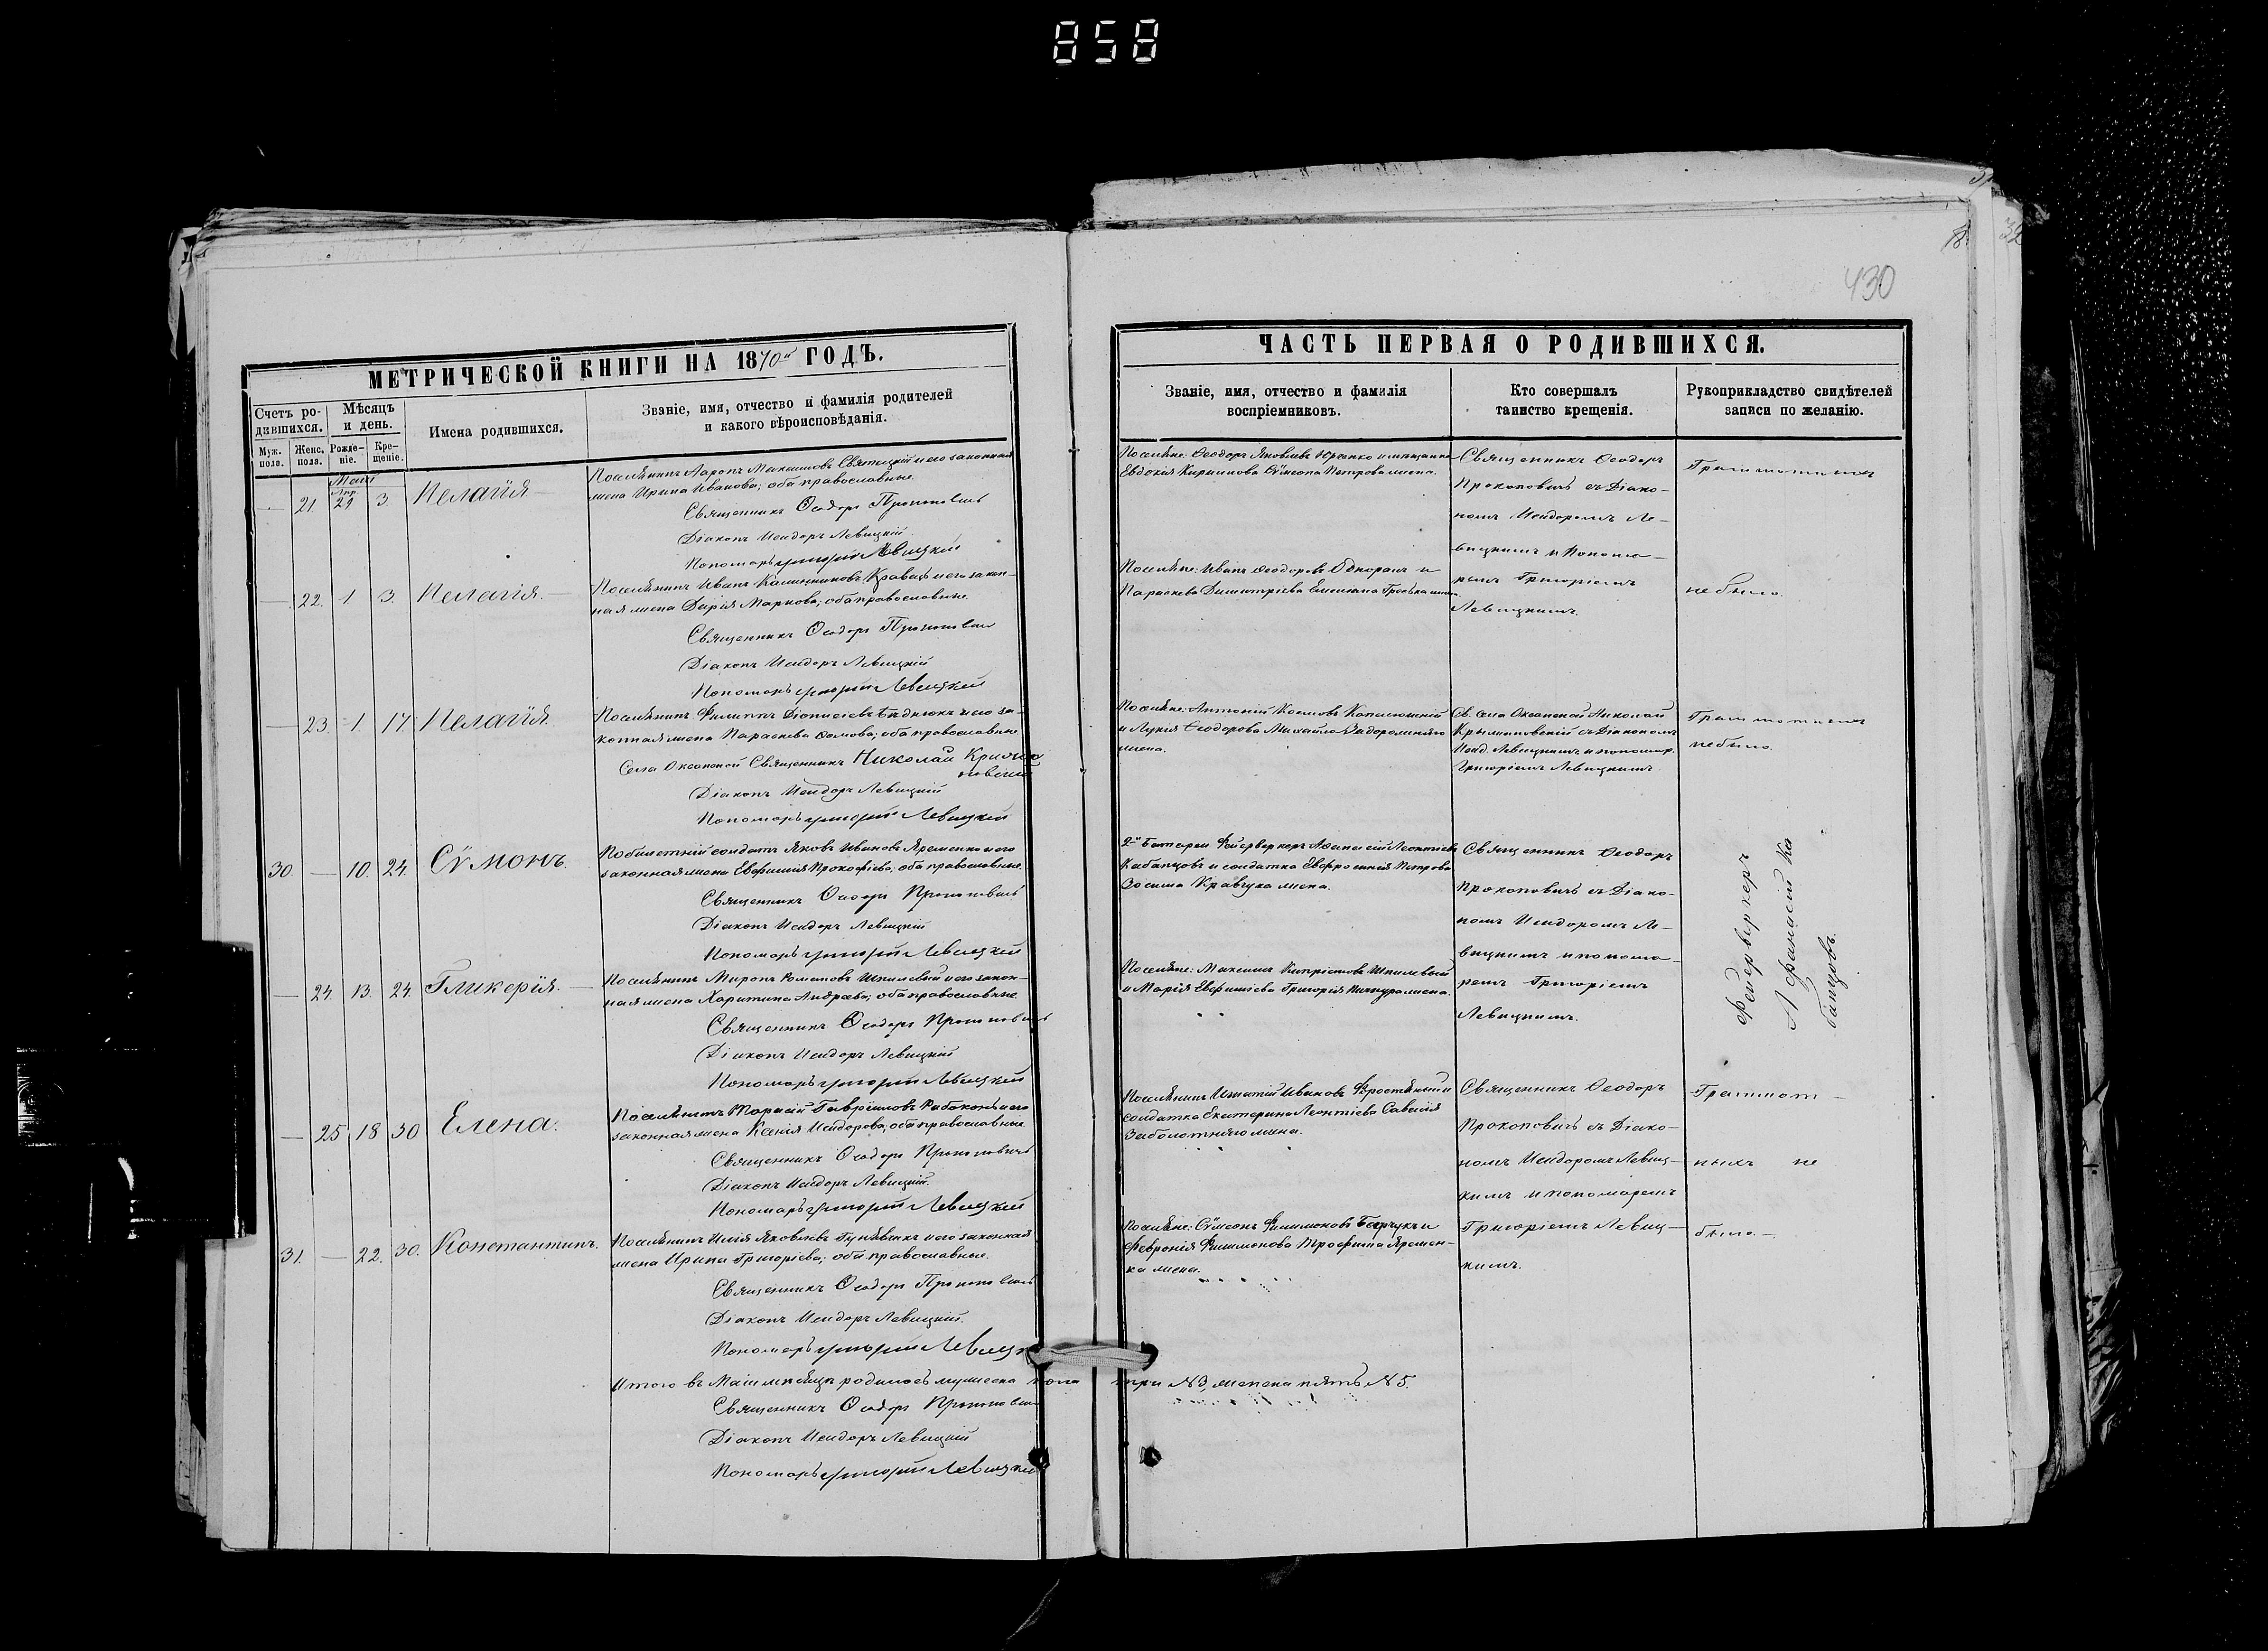 858
430
МЕТРИЧЕСКОЙ КНИГИ НА 1870й ГОДЪ.
Счетъ ро-
дившихся.
Мѣсяцъ
и день.
Имена родившихся.
Званіе, имя, отчество и фамилія родителей
и какого вѣроисповѣданія.
Муж.
пола.
Женс.
пола.
Рожде-
ніе.
Кре-
щеніе.
Май
Апр.
— 21 29 3. Пелагія —
Поселянинъ Ларіонъ и его законная
жена Ирина Иванова; оба православные.
Священникъ Ѳеодоръ Прокоповичъ
Діаконъ Исидоръ Левицкій
Пономарь Григорій Левицкій
— 22. 1 3. Пелагія. —
Поселянинъ Иванъ Кравецъ и его закон-
ная жена Дарія Маркова; оба православные.
Священникъ Ѳеодоръ Прокоповичъ
Діаконъ Исидоръ Левицкій
Пономарь Григорій Левицкій
— 23. 1 17 Пелагія.
Поселянинъ Филиппъ Діонисіевъ Бѣднюкъ и его за-
конная жена Параскева; оба православные
Села Священникъ Николай
Діаконъ Исидоръ Левицкій
Пономарь Григорій Левицкій
30. — 10. 24. Сѵмонъ.
солдатъ Яковъ Ивановъ Яременко и его
законная жена Евфимія Прокофіева; оба православные.
Священникъ Ѳеодоръ Прокоповичъ
Діаконъ Исидоръ Левицкій
Пономарь Григорій Левицкій
— 24. 13. 24. Гликерія. —
Поселянинъ Миронъ Романовъ Шпилевый и его закон-
ная жена Харитина Андреева; оба православные.
Священникъ Ѳеодоръ Прокоповичъ
Діаконъ Исидоръ Левицкій
Пономарь Григорій Левицкій
— 25 18 30 Елена.
Поселянинъ Тарасій Гавріиловъ Рабоконь и его
законная жена Ксенія Исидорова; оба православные.
Священникъ Ѳеодоръ Прокоповичъ
Діаконъ Исидоръ Левицкій.
Пономарь Григорій Левицкій
31. — 22. 30. Константинъ.
Поселянинъ Илія Яковлевъ и его законная
жена Ирина Григоріева; оба православные.
Священникъ Ѳеодоръ Прокоповичъ
Діаконъ Исидоръ Левицкій.
Пономарь Григорій Левицк
Итого въ Маѣ мѣсяцѣ родилось мужеска пола три №3, женска пять №5.
Священникъ Ѳеодоръ Прокоповичъ
Діаконъ Исидоръ Левицкій
Пономарь Григорій Левицкій
ЧАСТЬ ПЕРВАЯ О РОДИВШИХСЯ.
Званіе, имя, отчество и фамилія
воспріемниковъ.
Кто совершалъ
таинство крещенія.
Рукоприкладство свидѣтелей
записи по желанію.
Поселяне: Ѳеодоръ Яковлевъ Юрченко и
Евдокія Кириллова Сѵмеона Петрова жена.
Поселяне: Иванъ Ѳеодоровъ и
Параскева Димитріева
Поселяне: Антоній Космовъ
и Лукія Ѳеодорова Михаила
жена.
2й Батареи Фейерверкеръ Аѳанасій Леонтіевъ
Кабанцовъ и солдатка Евфросинія Петрова
Зосима Кравчука жена.
Поселяне: Максимъ Кипріяновъ Шпилевый
и Марія Евфиміева Григорія жена.
Поселянинъ Игнатій Ивановъ и
солдатка Екатерина Леонтіева Савелія
Заболотняго жена.
Поселяне: Сѵмеонъ Филимоновъ и
Февронія Филимонова Трофима Яремен-
ка жена.
Священникъ Ѳеодоръ
Прокоповичъ съ Діако-
номъ Исидоромъ Ле-
вицкимъ и Понома-
ремъ Григоріемъ
Левицкимъ.
Св. села Николай
съ Діакономъ
Исид. Левицкимъ и пономар.
Григоріемъ Левицкимъ
Священникъ Ѳеодоръ
Прокоповичъ съ Діако-
номъ Исидоромъ Ле-
вицкимъ и понома-
ремъ Григоріемъ
Левицкимъ.
Священникъ Ѳеодоръ
Прокоповичъ съ Діако-
номъ Исидоромъ Левиц-
кимъ и пономаремъ
Григоріемъ Левиц-
кимъ.
Грамотныхъ
не было.
Грамотныхъ
не было.
Фейерверкеръ
Афанасій Ка
банцовъ.
Грамот-
ныхъ не
было. —